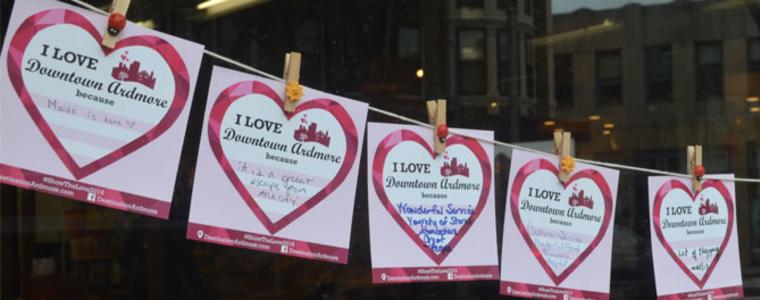 I LOVE
Downtown Ardmore
because
Maido is here
#ShowTheLove2016
DestinationArdmore.com
DestinationArdmore
I LOVE
Downtown Ardmore
because
it is a great
escape from
the city
#ShowTheLove2016
DestinationArdmore.com
DestinationArdmore
I LOVE
Downtown Ardmore
because
Wonderful Service
Variety of
Atmosphere
Great
#ShowTheLove2016
DestinationArdmore.com
DestinationArdmore
I LOVE
Downtown Ardmore
because
Service
Food
#ShowTheLove2016
DestinationArdmore.com
I LOVE
Downtown Ardmore
because
Lot of shopping